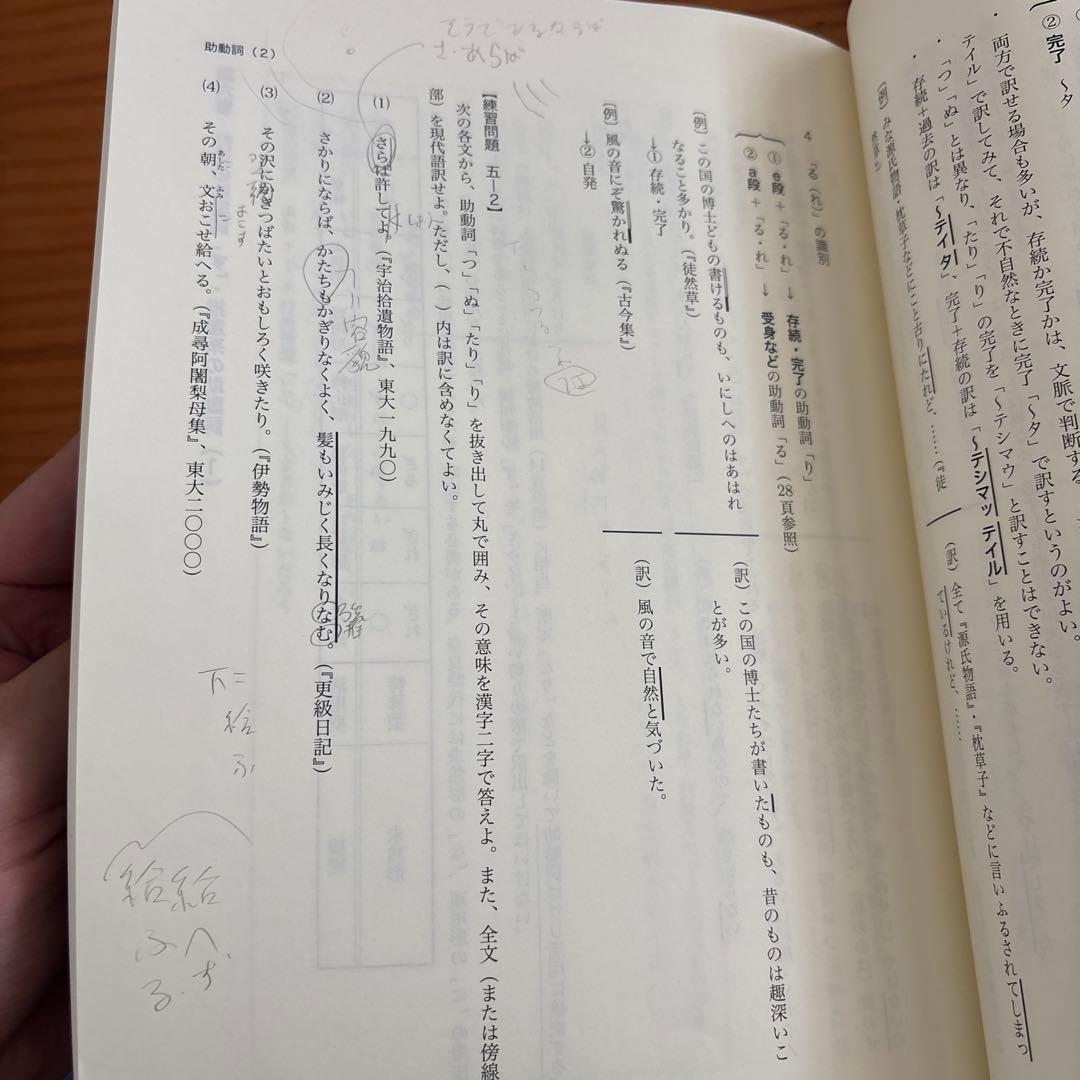 ② 完了　〜タ
・両方で訳せる場合も多いが、存続か完了かは、文脈で判断する
テイル」で訳してみて、それで不自然なときに完了「〜タ」で訳すというのがよい。
・「つ」「ぬ」とは異なり、「たり」「り」の完了を「〜テシマウ」と訳すことはできない。
・存続＋過去の訳は「〜テイタ」、完了＋存続の訳は「〜テシマッテイル」を用いる。
〔例〕みな源氏物語・枕草子などにこと古りにたれど、……（『徒
（訳）全て『源氏物語』・『枕草子』などに言いふるされてしまっ
ているけれど、……
4　「る（れ）」の識別
① e段＋「る・れ」→ 存続・完了の助動詞「り」
② a段＋「る・れ」→ 受身などの助動詞「る」（28頁参照）
〔例〕この国の博士どもの書けるものも、いにしへのはあはれ
なること多かり。（『徒然草』）
→① 存続・完了
（訳）この国の博士たちが書いたものも、昔のものは趣深いこ
とが多い。
〔例〕風の音にぞ驚かれぬる（『古今集』）
→② 自発
（訳）風の音で自然と気づいた。
【練習問題　五―2】
次の各文から、助動詞「つ」「ぬ」「たり」「り」を抜き出して丸で囲み、その意味を漢字二字で答えよ。また、全文（または傍線
部）を現代語訳せよ。ただし、（　）内は訳に含めなくてよい。
(1)　さらば許してよ。（『宇治拾遺物語』、東大一九九〇）
(2)　さかりにならば、かたちもかぎりなくよく、髪もいみじく長くなりなむ。（『更級日記』）
(3)　その沢にかきつばたいとおもしろく咲きたり。（『伊勢物語』）
(4)　その朝、文おこせ給へる。（『成尋阿闍梨母集』、東大二〇〇〇）
あした　ふみ
助動詞（2）
そうであるならば
さ・あらば
容貌
下二
給ふ
給へ
給ふる